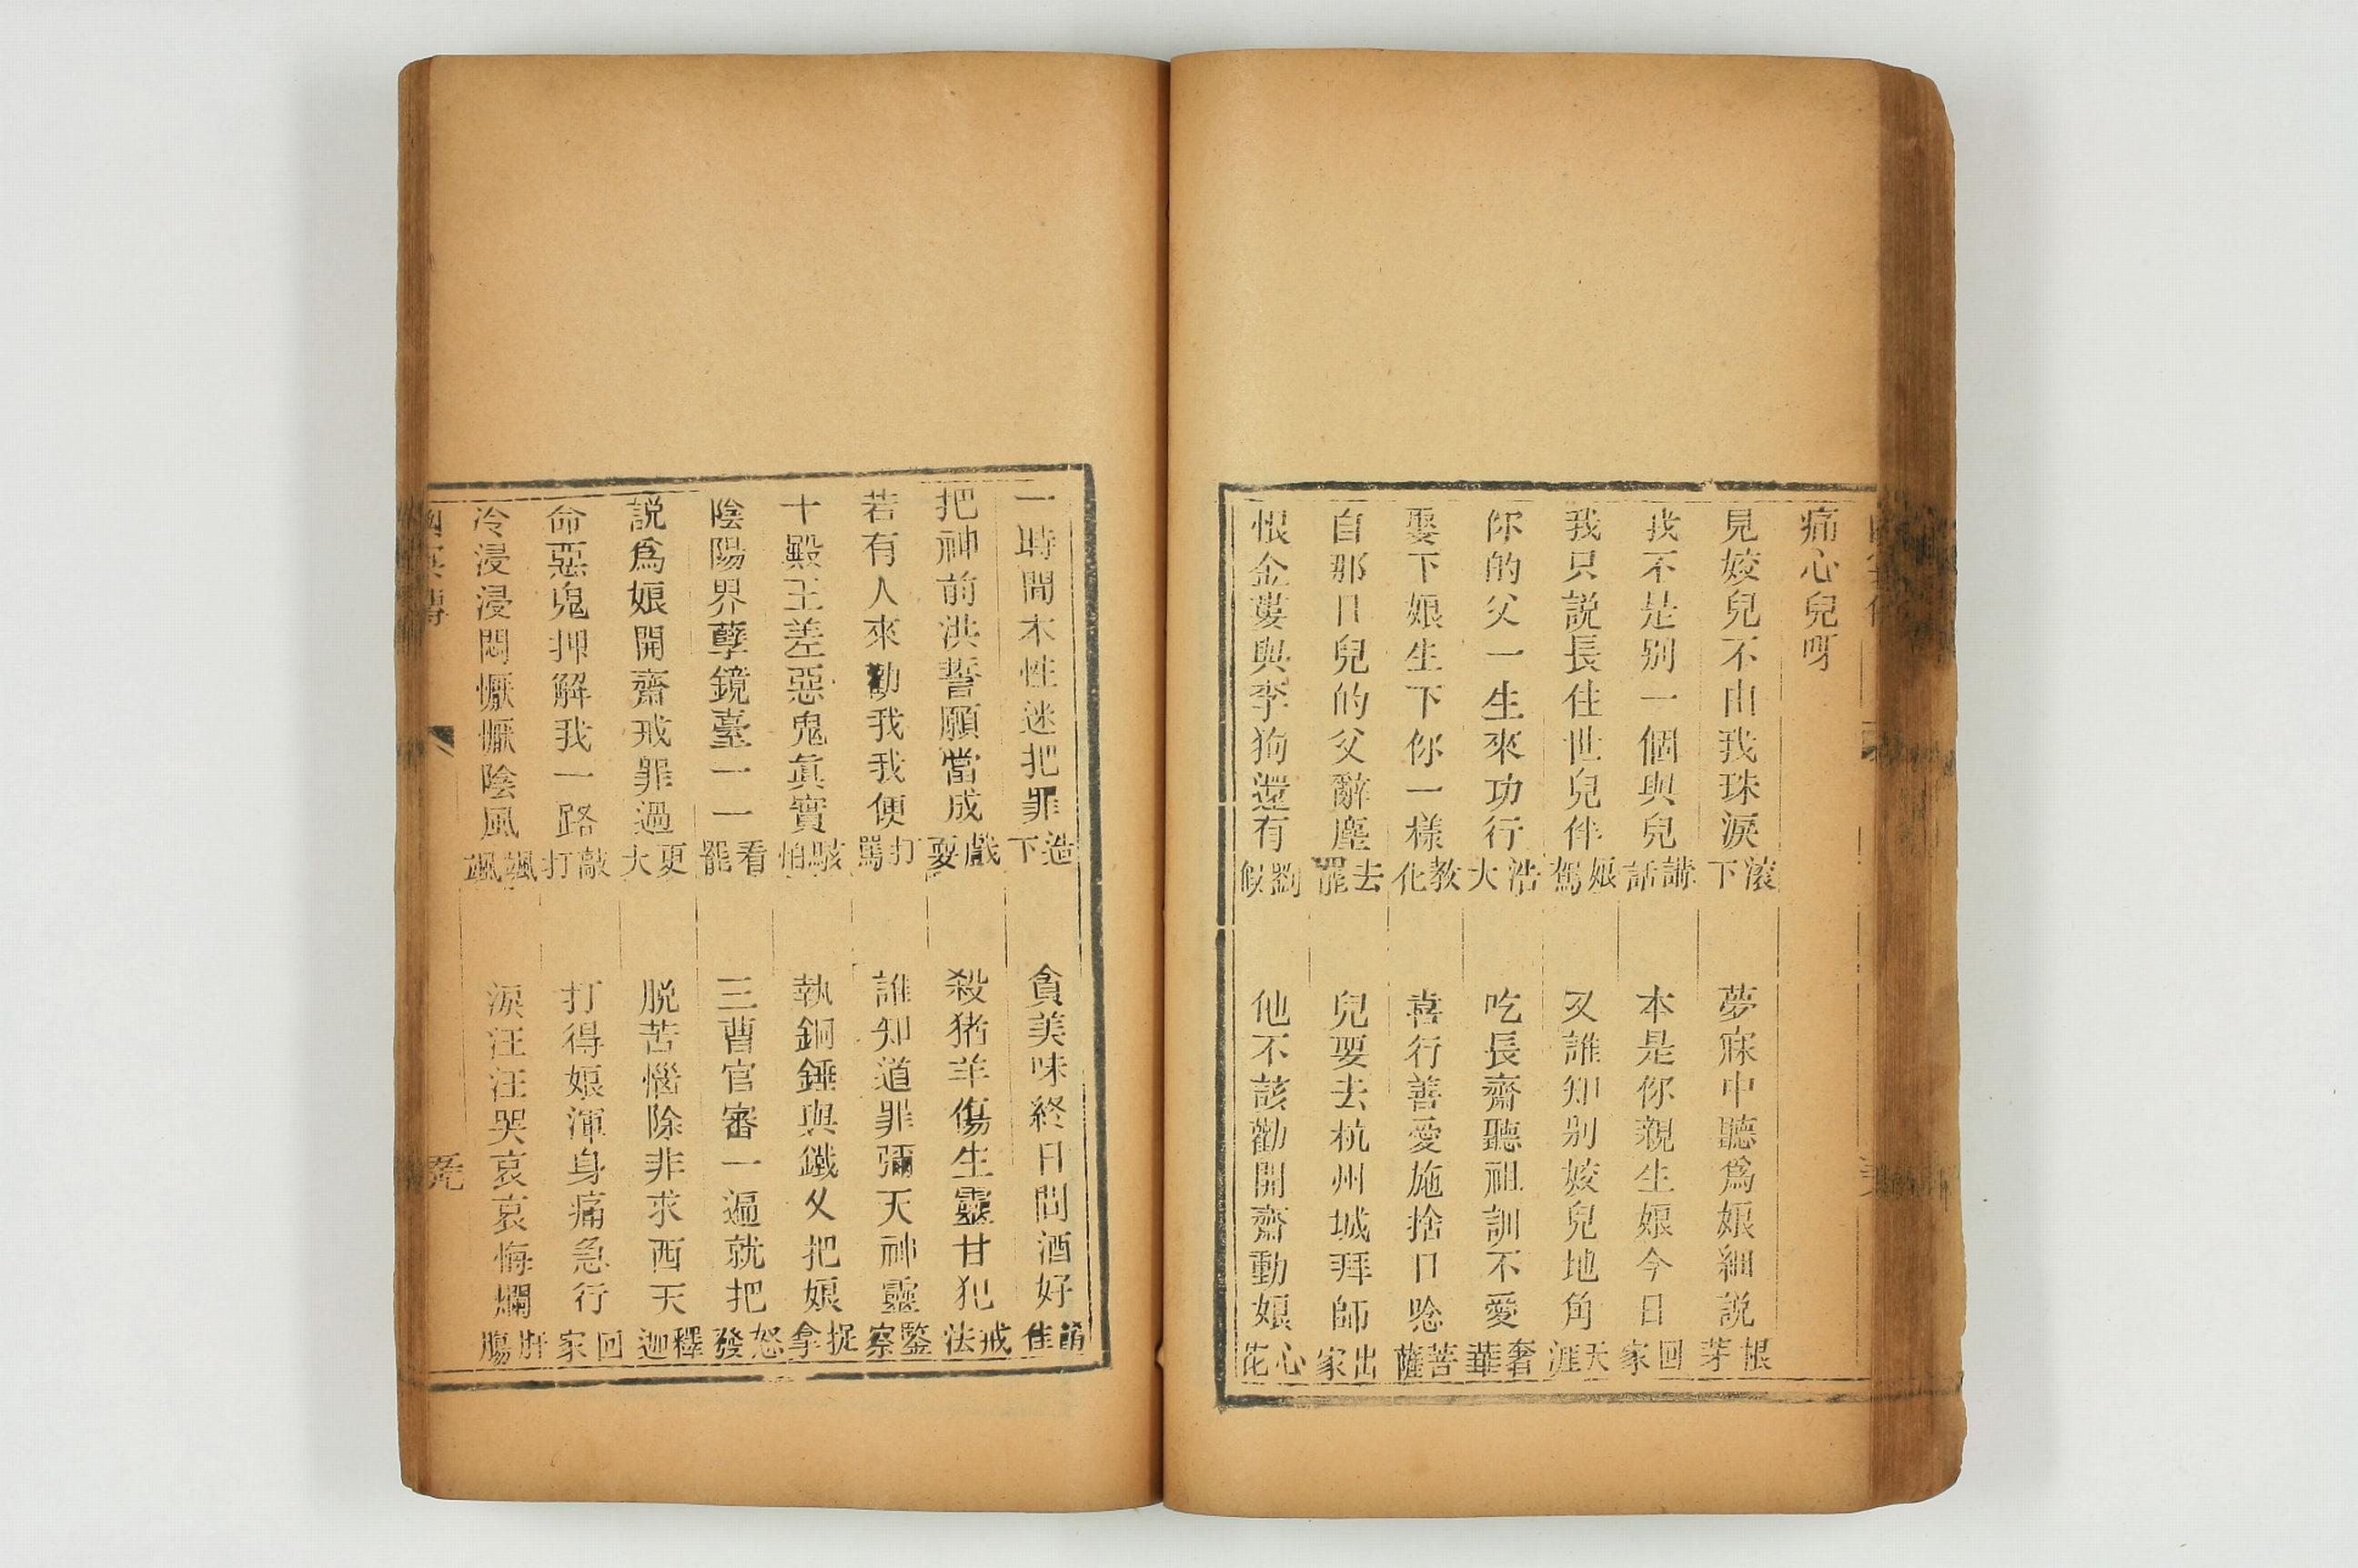 痛心兒呀
見姣兒不由我珠淚滚下　夢寐中聽爲娘細説根芽
我不是别一個與兒講話　本是你親生娘今日回家
我只説長住世兒伴娘駕　又誰知别姣兒地角天涯
你的父一生來功行浩大　吃長齋聽祖訓不愛奢華
娶下娘生下你一樣教化　喜行善愛施捨口唸菩薩
自那日兒的父辭塵去罷　兒要去杭州城拜師出家
恨金蔞與李狗還有劉假　他不該勸開齋動娘心花
一時間本性迷把罪造下　貪美味終日間酒好佳
把神前洪誓願當成戲耍　殺猪羊傷生靈甘犯戒法
若有人來勸我我便打罵　誰知道罪彌天神靈鑒察
十殿王差惡鬼眞實駭怕　執銅錘與鐵义把娘捉拿
陰陽界孽鏡臺一一看罷　三曹官審一遍就把怒發
説爲娘開齋戒罪過更大　脱苦惱除非求西天釋迦
命惡鬼押解我一路敲打　打得娘渾身痛急行回家
冷浸浸悶懨懨陰風颯颯　淚汪汪哭哀哀悔爛肝膓